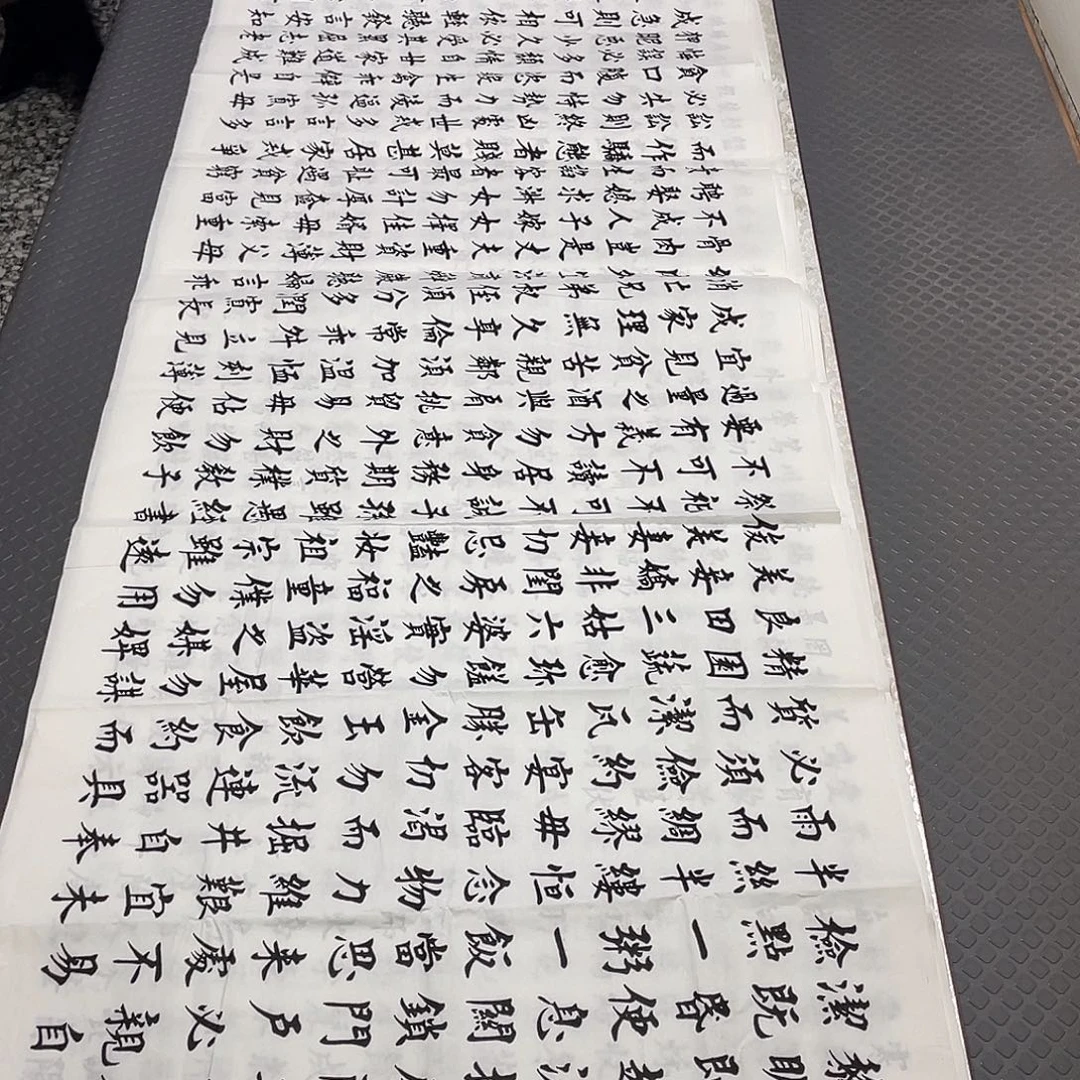 黎明即起
潔既昏便息關鎖門戶必親自
檢點一粥一飯當思來處不易
半絲半縷恒念物力維艱宜未
雨而綢繆毋臨渴而掘井自奉
必須儉約宴客切勿流連器具
質而潔瓦缶勝金玉飲食約而
精園蔬愈珍饈勿營華屋勿謀
良田三姑六婆實淫盜之媒婢
美妾嬌非閨房之福童僕勿用
俊美妻妾切忌豔妝祖宗雖遠
祭祀不可不誠子孫雖愚經書
不可不讀居身務期質樸教子
要有義方勿貪意外之財勿飲
過量之酒與肩挑貿易毋佔便
宜見貧苦親鄰須加溫恤刻薄
成家理無久享倫常乖舛立見
消亡兄弟叔侄須分多潤寡長
聽婦言乖
骨肉豈是丈夫重資財薄父母
不成人子嫁女擇佳婿毋索重
聘娶媳求淑女勿計厚奩見
而生諂容者最可恥遇貧窮
而作驕態者賤莫甚居家戒爭
訟訟則終凶處世戒多言言多
必失勿恃勢力而凌逼孤寡毋
貪口腹而恣生禽乖僻自是
悔誤必多頹惰自甘家道難成
狎昵惡少久必受其累屈志老
成急則可相依輕聽發言安知